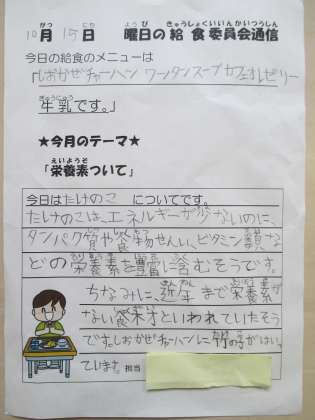 10月15日 曜日の給食委員会通信
今日の給食のメニューは
「しおかぜチャーハン ワンタンスープ カフェオレゼリー
牛乳です。」
★今月のテーマ★
「栄養素ついて」
今日はたけのこ についてです。
たけのこは、エネルギーが少ないのに、
タンパク質や食物せんい、ビタミン類な
どの栄養素を豊富に含むそうです。
ちなみに、近年まで栄養素が
ない食材といわれていたそう
です。しおかぜチャーハンに竹の子がはい
ています。 担当